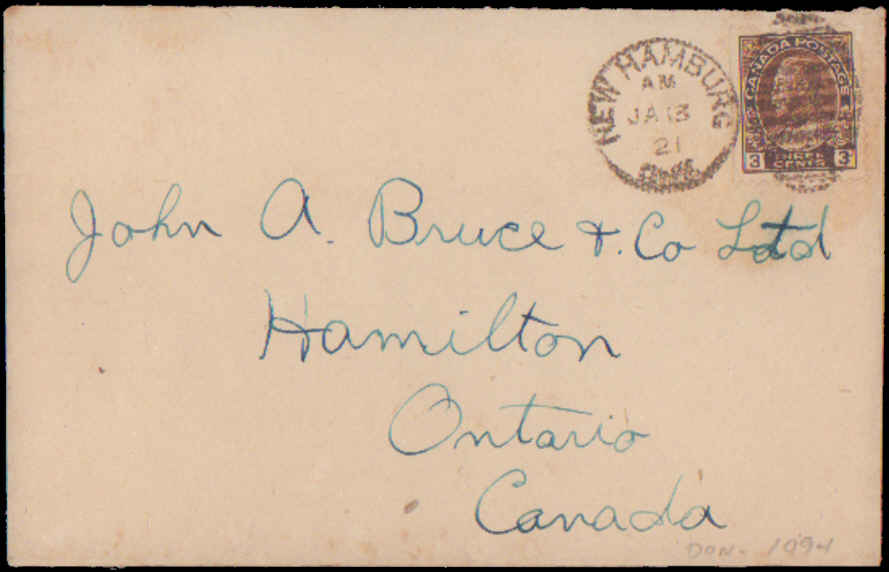 NEW HAMBURG
AM
JA 13
21
CANADA POSTAGE
3 THREE CENTS 3
John A. Bruce & Co Ltd
Hamilton
Ontario
Canada
DON. 1994